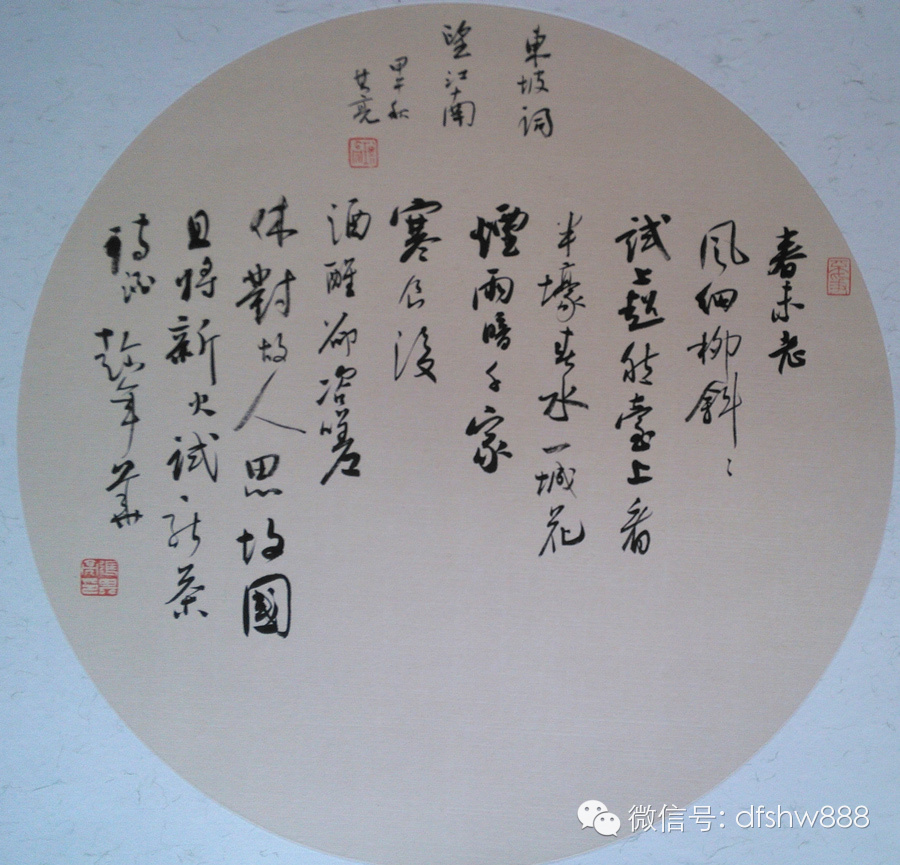 春未老
風細柳斜〻
試上超然臺上看
半壕春水一城花
煙雨暗千家
寒食後
酒醒卻咨嗟
休對故人思故國
且將新火試新茶
詩酒趁年華
東坡詞
望江南
甲午秋
微信号: dfshw888